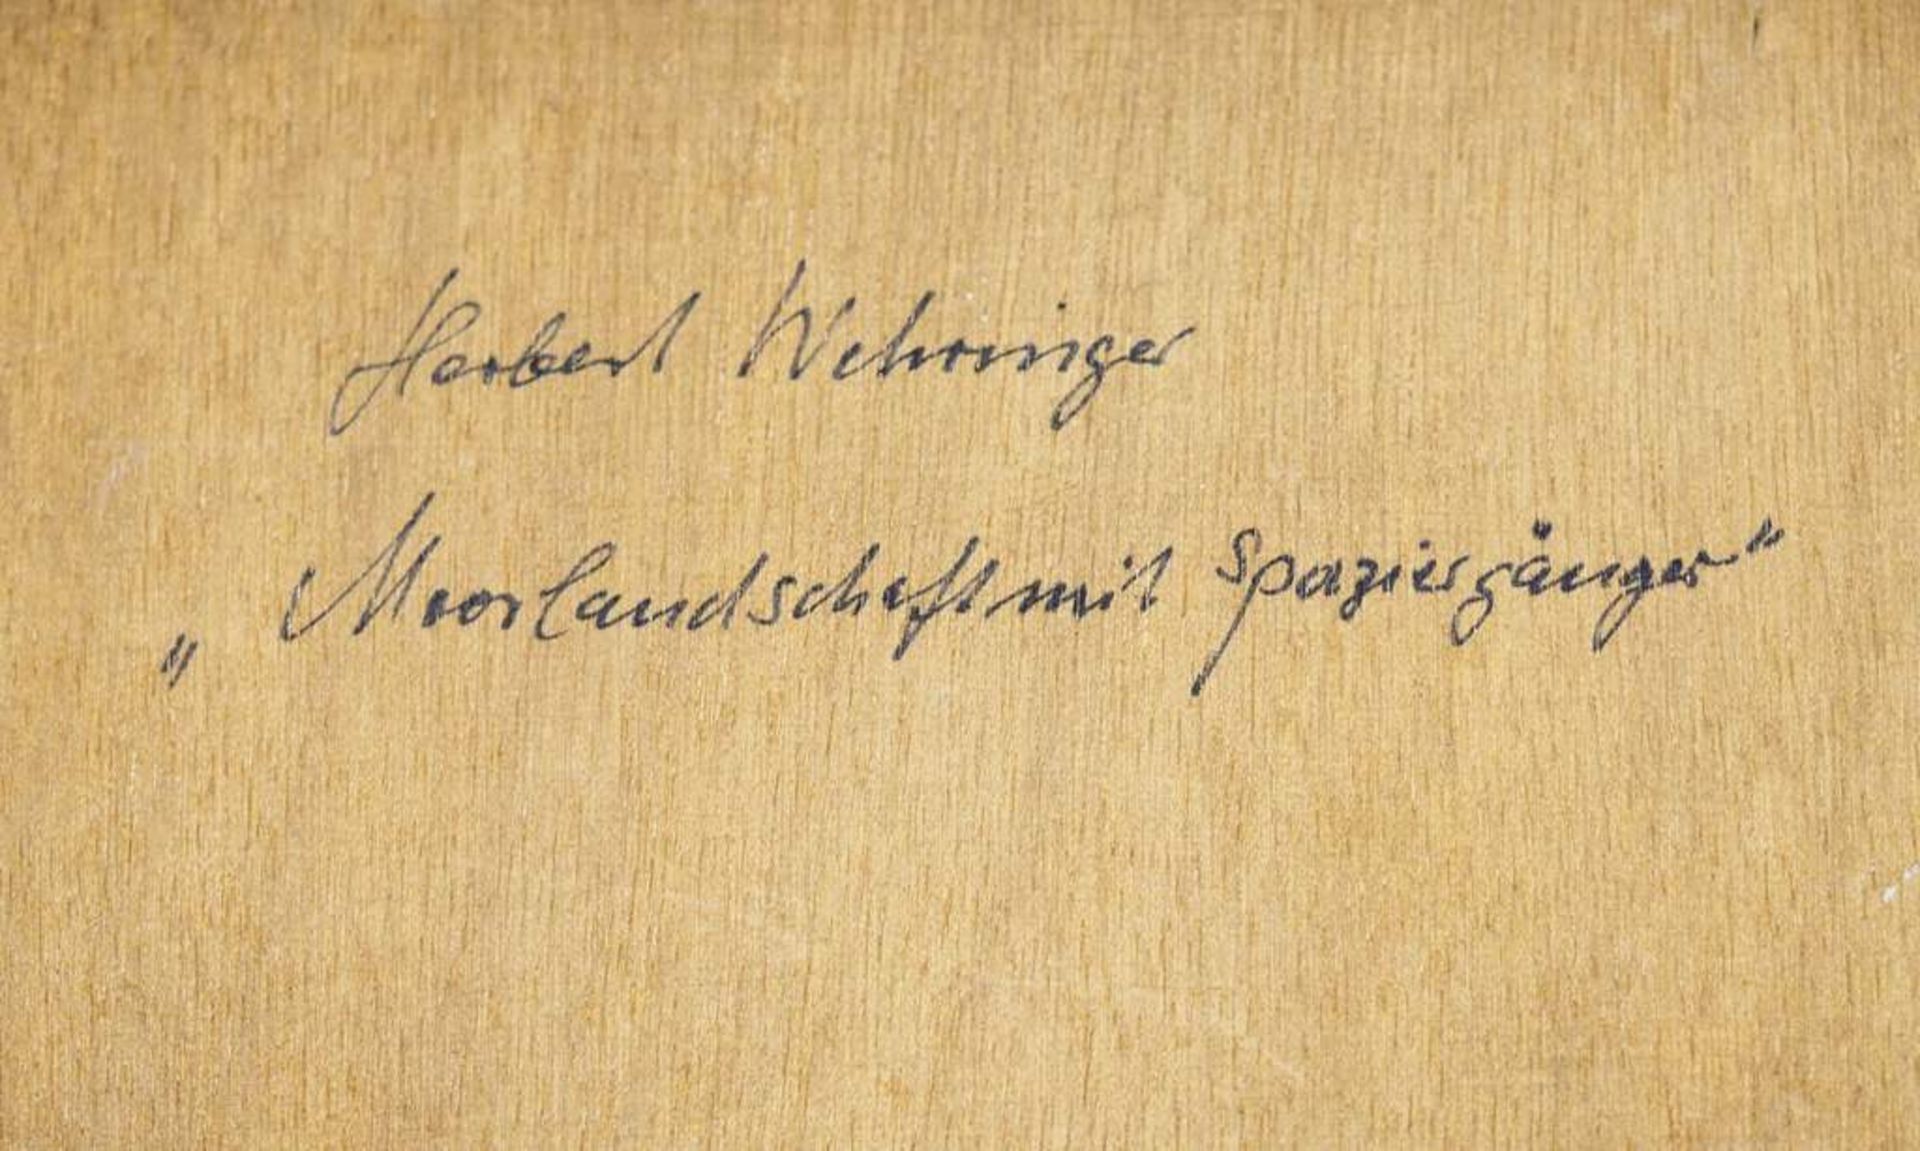 Herbert Wehringer
„Moorlandschaft mit Spaziergänger“